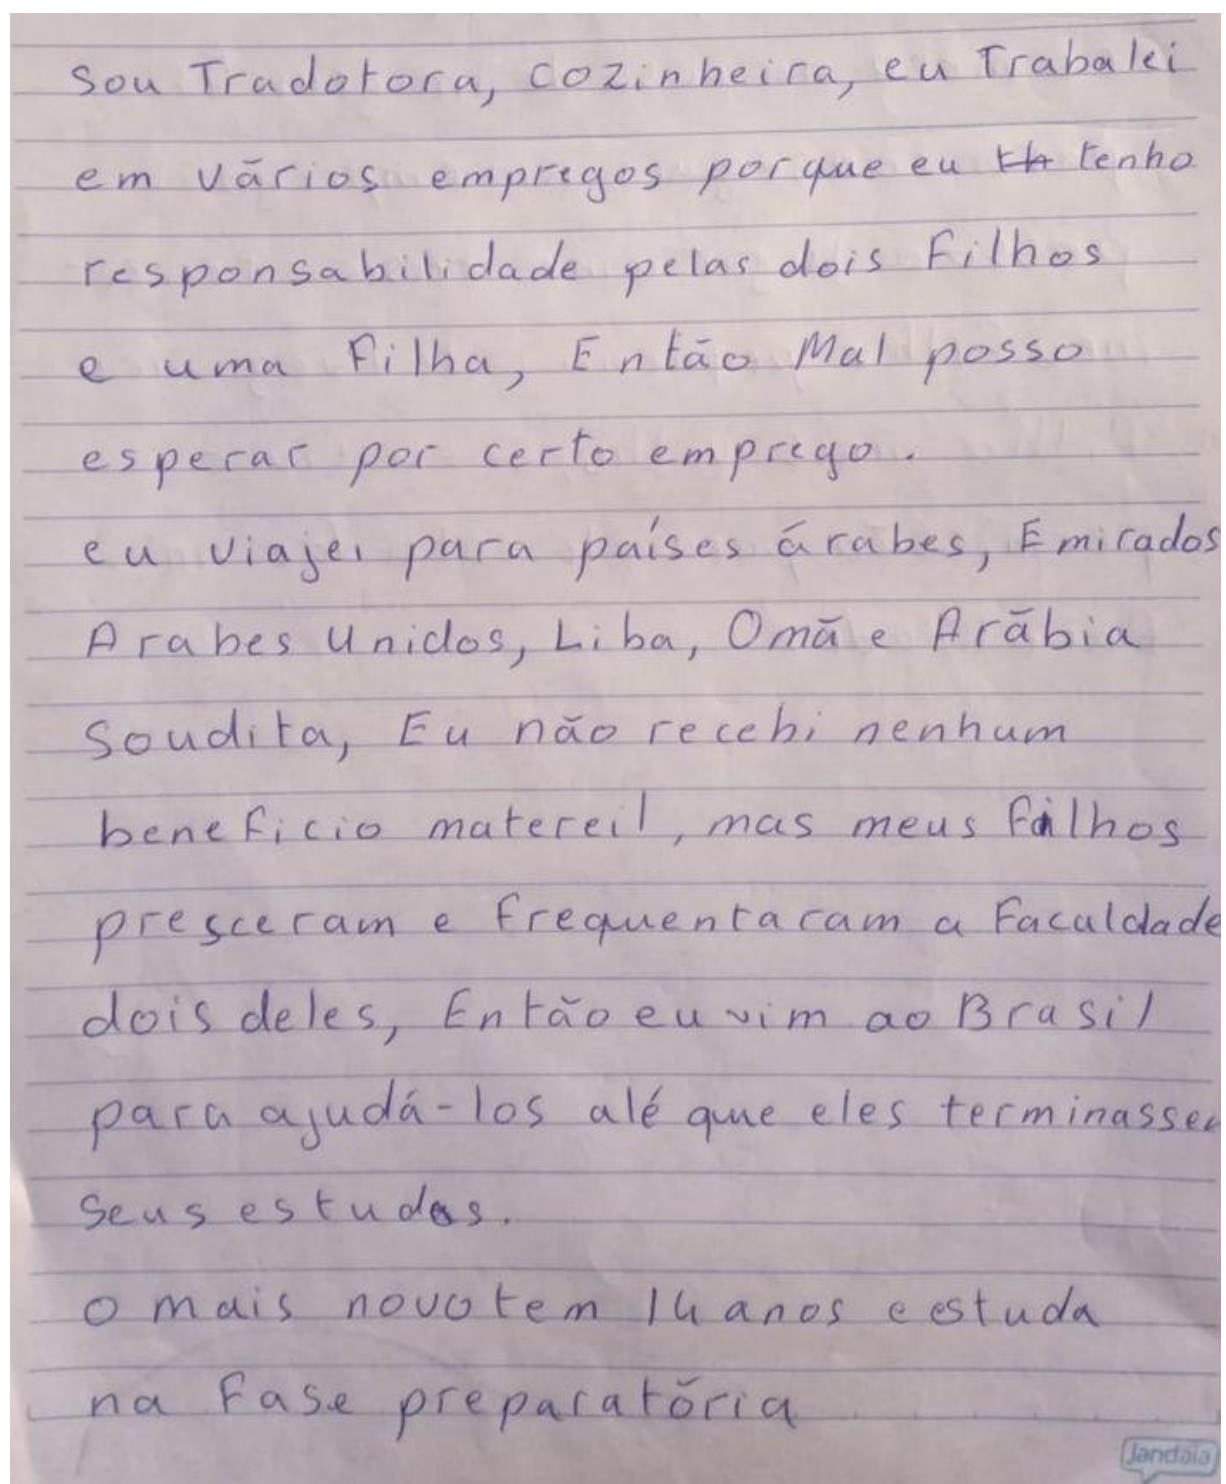 Sou Tradotora, cozinheira, eu Trabalei
em vários empregos porque eu tenho
responsabilidade pelas dois Filhos
e uma Filha, Então Mal posso
esperar por certo emprego.
eu viajei para países árabes, Emirados
Arabes Unidos, Liba, Omã e Arãbia
Soudita, Eu não recebi nenhum
beneficio matereil, mas meus filhos
presceram e Frequentaram a Faculdade
dois deles, Então eu vim ao Brasil
para ajudá-los alé que eles terminassem
seus estudos.
o mais novo tem 14 anos e estuda
na Fase preparatõria
Jandaia